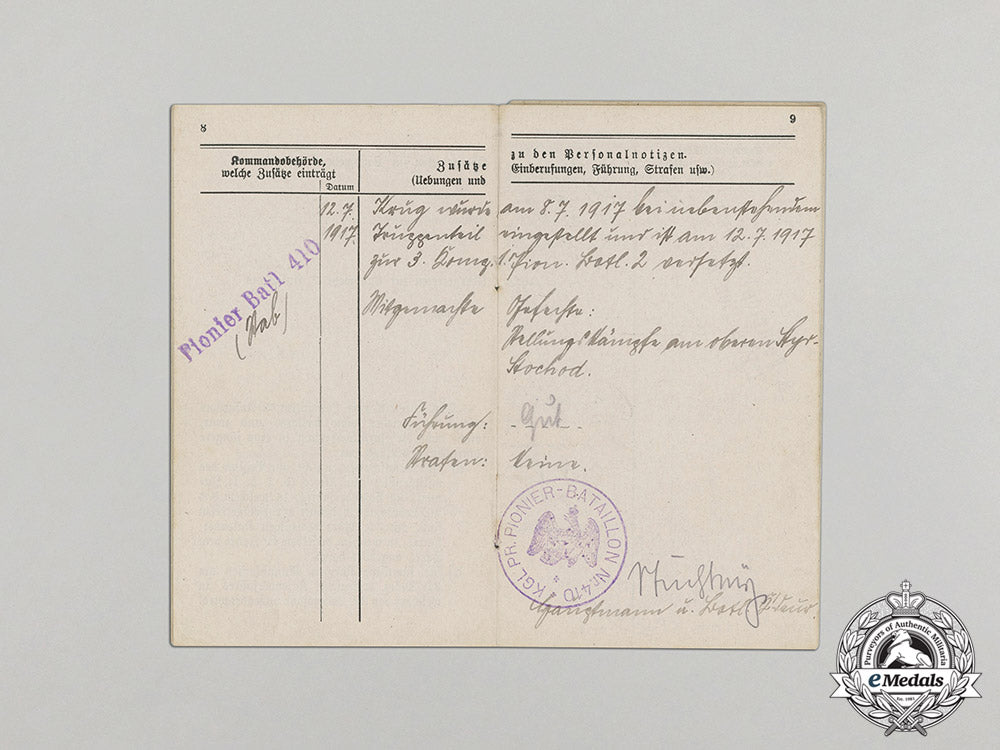 8
9
Kommandobehörde,
welche Zusätze einträgt
Datum
Zusätze zu den Personalnotizen.
(Uebungen und Einberufungen, Führung, Strafen usw.)
12.7. Krug wurde am 8.7.1917 bei nebenstehendem
1917. Truppenteil eingestellt und ist am 12.7.1917
zur 3. Komp. 1. Pion. Batl. 2 versetzt.
Pionier Batl 410
(Stab)
Mitgemachte Gefechte:
Stellungskämpfe am oberen Styr-
Stochod.
Führung: - Gut -.
Strafen: Keine.
KGL. PR. PIONIER-BATAILLON Nr. 410
Hauptmann u. Batl.
Purveyors of Authentic Militaria
eMedals
Est. 1985